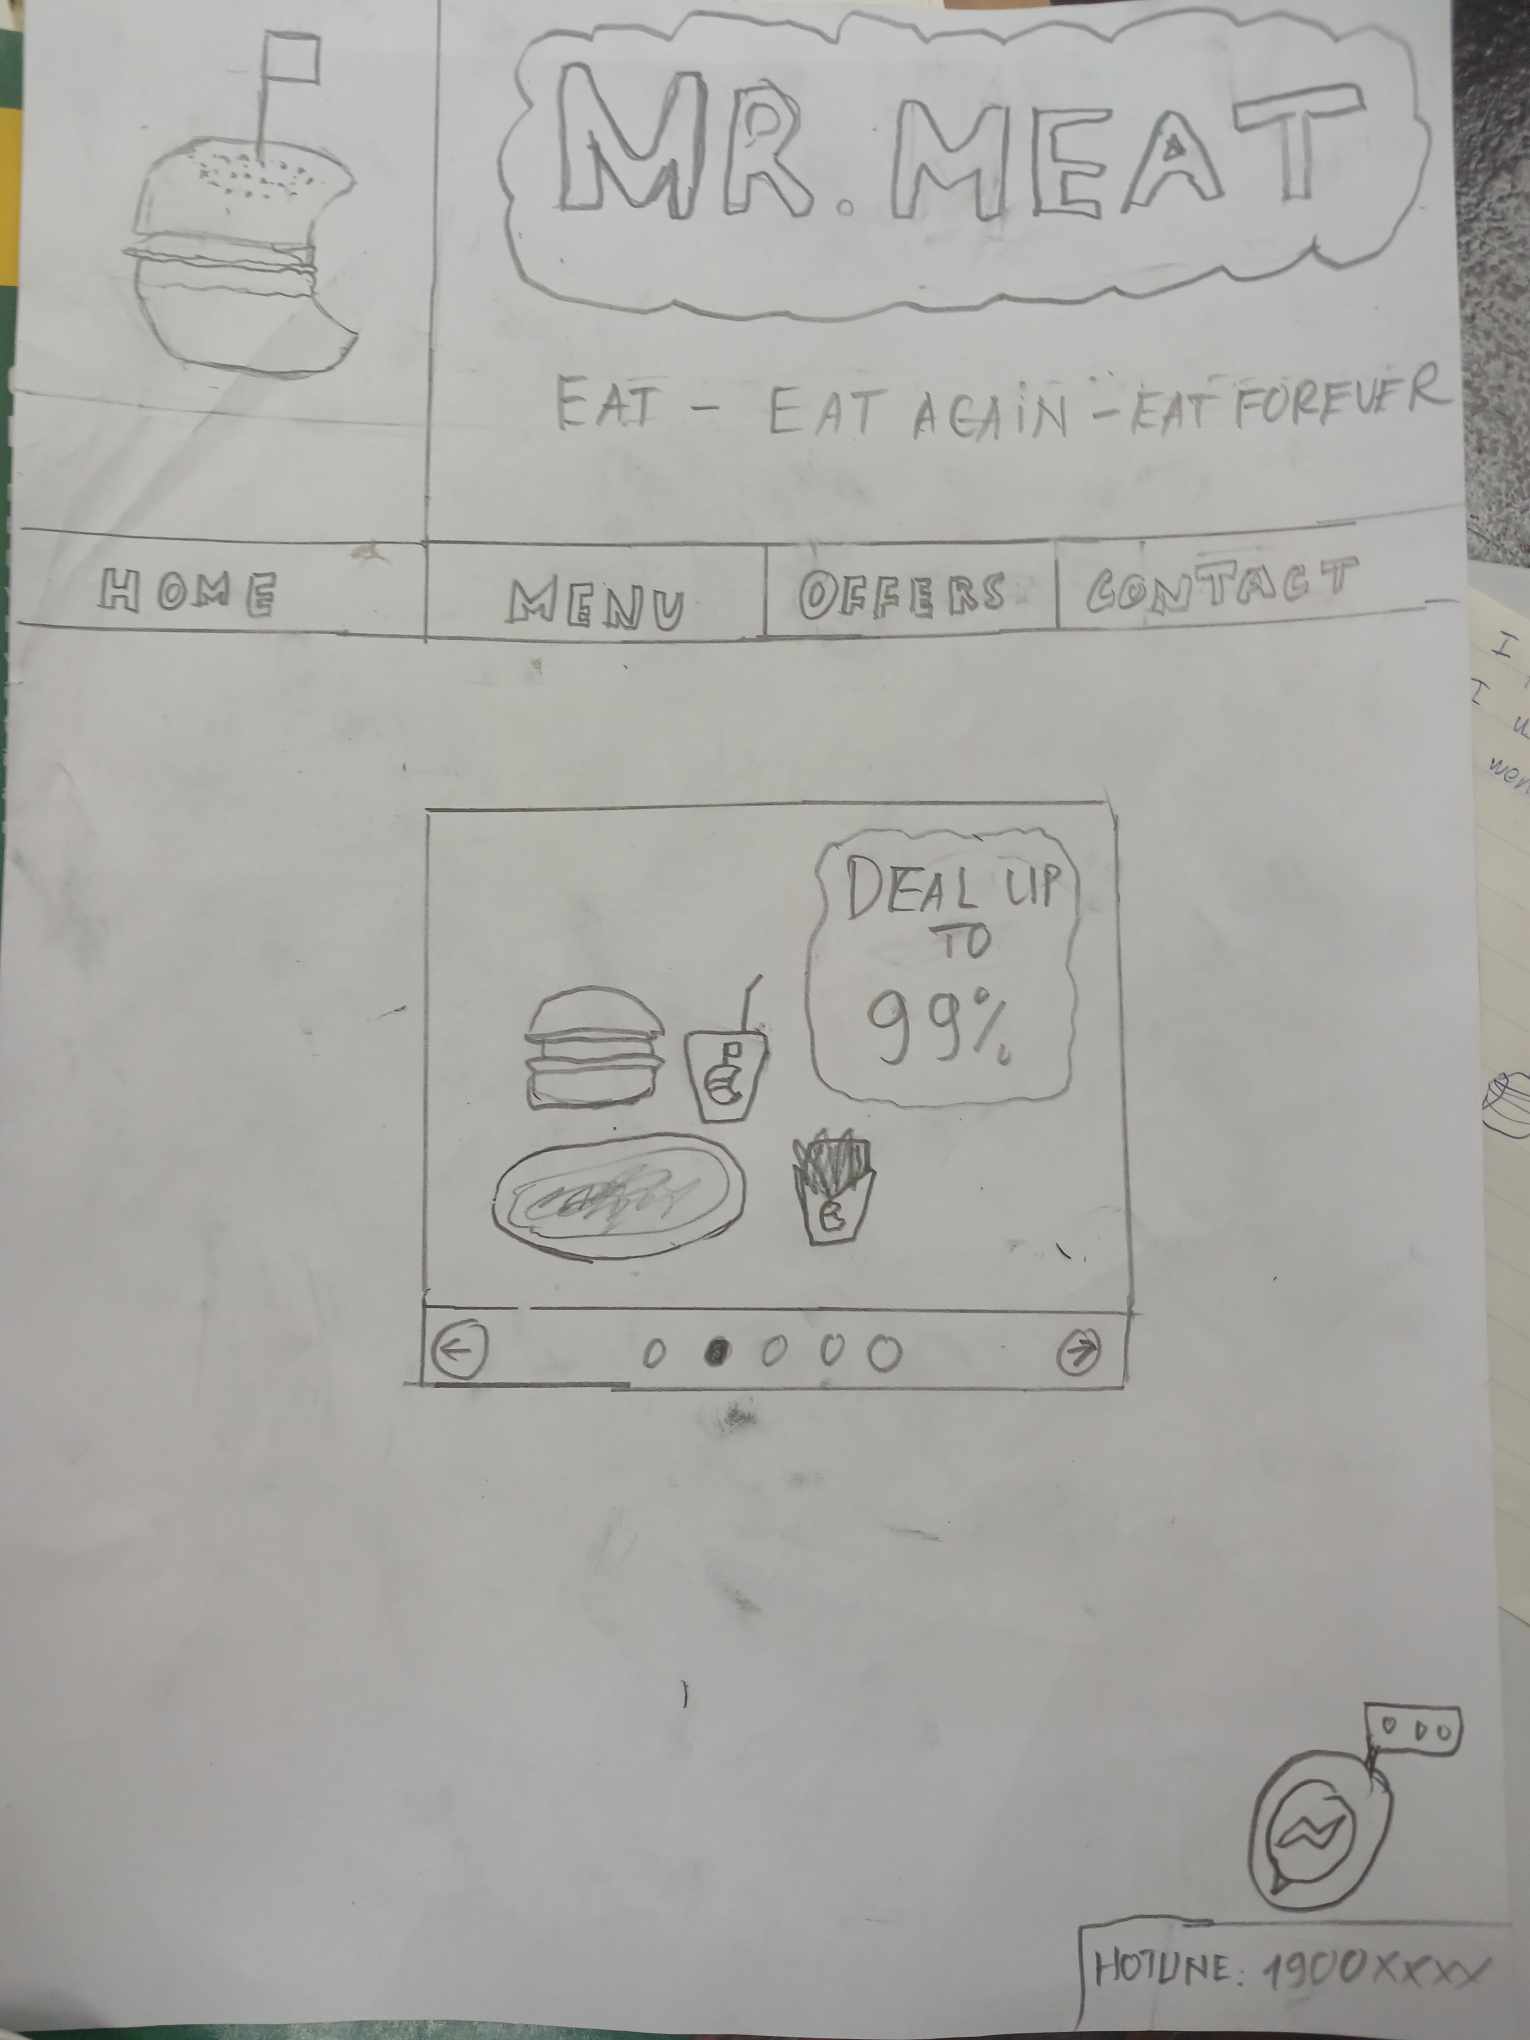 MR. MEAT
EAT - EAT AGAIN - EAT FOREVER
HOME MENU OFFERS CONTACT
DEAL UP
TO
99%
HOTLINE: 1900XXXX
I
I